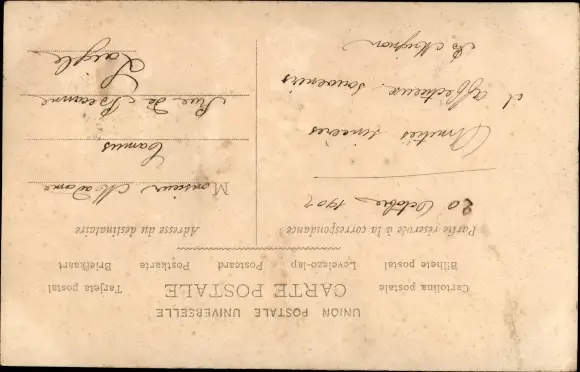 UNION POSTALE UNIVERSELLE
CARTE POSTALE
Cartolina postale
Tarjeta postal
Bilhete postal
Levelezo-lap
Postcard
Postkarte
Briefkaart
Partie réservée à la correspondance
Adresse du destinataire
20 Octobre 1902
Amitiés sincères
& affectueux souvenirs
B. Mougnon
Monsieur Madame
Camus
Rue de Bécanne
Laigle